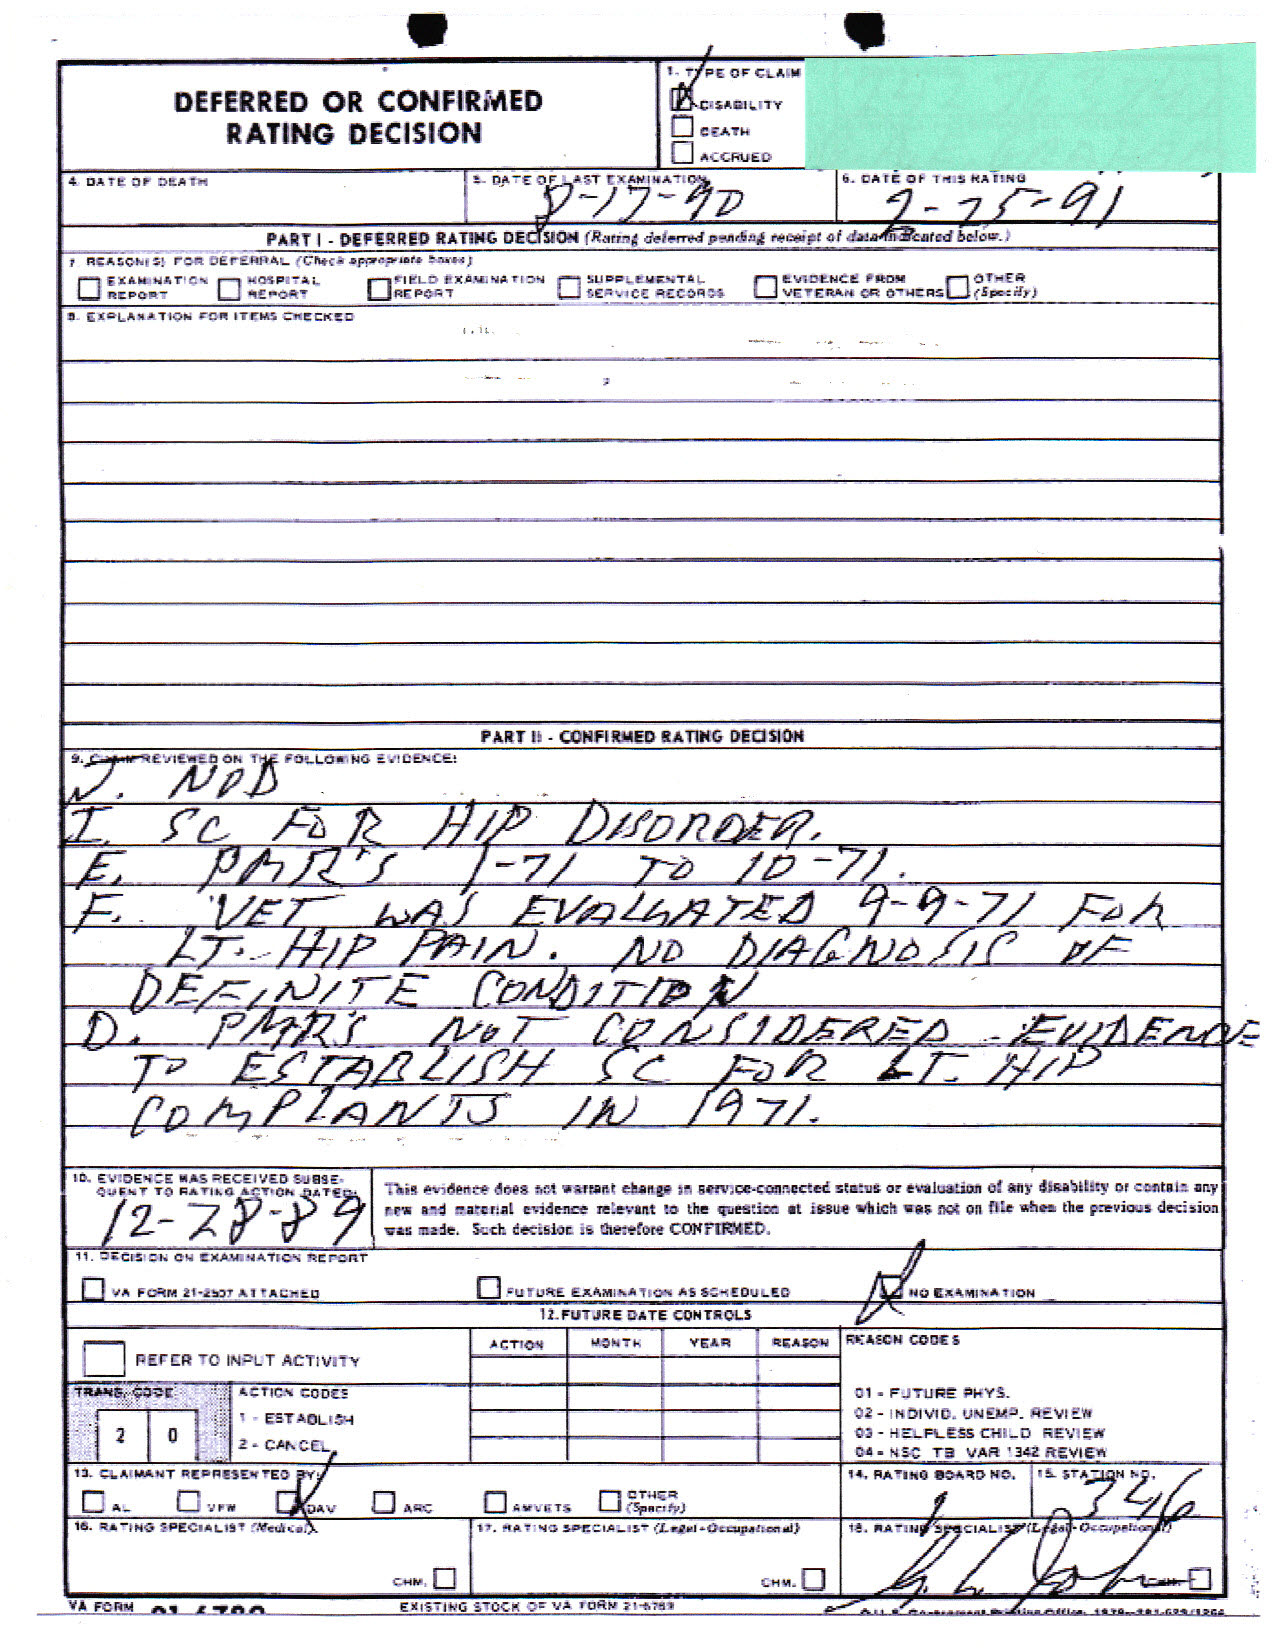 DEFERRED OR CONFIRMED
RATING DECISION
1. TYPE OF CLAIM
DISABILITY
DEATH
ACCRUED
4. DATE OF DEATH
5. DATE OF LAST EXAMINATION
8-17-90
6. DATE OF THIS RATING
2-25-91
PART I - DEFERRED RATING DECISION (Rating deferred pending receipt of data indicated below.)
7. REASON(S) FOR DEFERRAL (Check appropriate boxes)
EXAMINATION REPORT
HOSPITAL REPORT
FIELD EXAMINATION REPORT
SUPPLEMENTAL SERVICE RECORDS
EVIDENCE FROM VETERAN OR OTHERS
OTHER (Specify)
8. EXPLANATION FOR ITEMS CHECKED
PART II - CONFIRMED RATING DECISION
9. CLAIM REVIEWED ON THE FOLLOWING EVIDENCE:
J. NOD
I. SC FOR HIP DISORDER.
E. PMR'S 1-71 TO 10-71.
F. VET WAS EVALUATED 9-9-71 FOR
LT. HIP PAIN. NO DIAGNOSIS OF
DEFINITE CONDITION
D. PMR'S NOT CONSIDERED EVIDENCE
TO ESTABLISH SC FOR LT. HIP
COMPLANTS IN 1971.
10. EVIDENCE WAS RECEIVED SUBSE-
QUENT TO RATING ACTION DATED:
12-28-89
This evidence does not warrant change in service-connected status or evaluation of any disability or contain any
new and material evidence relevant to the question at issue which was not on file when the previous decision
was made. Such decision is therefore CONFIRMED.
11. DECISION ON EXAMINATION REPORT
VA FORM 21-2507 ATTACHED
FUTURE EXAMINATION AS SCHEDULED
NO EXAMINATION
12. FUTURE DATE CONTROLS
REFER TO INPUT ACTIVITY
ACTION MONTH YEAR REASON
REASON CODES
TRANS. CODE
2 0
ACTION CODES
1 - ESTABLISH
2 - CANCEL
01 - FUTURE PHYS.
02 - INDIVID. UNEMP. REVIEW
03 - HELPLESS CHILD REVIEW
04 - NSC TB VAR 1342 REVIEW
13. CLAIMANT REPRESENTED BY:
AL VFW DAV ARC AMVETS OTHER (Specify)
14. RATING BOARD NO.
1
15. STATION NO.
346
16. RATING SPECIALIST (Medical)
CHM.
17. RATING SPECIALIST (Legal-Occupational)
CHM.
18. RATING SPECIALIST (Legal-Occupational)
VA FORM 21-6789
EXISTING STOCK OF VA FORM 21-6789